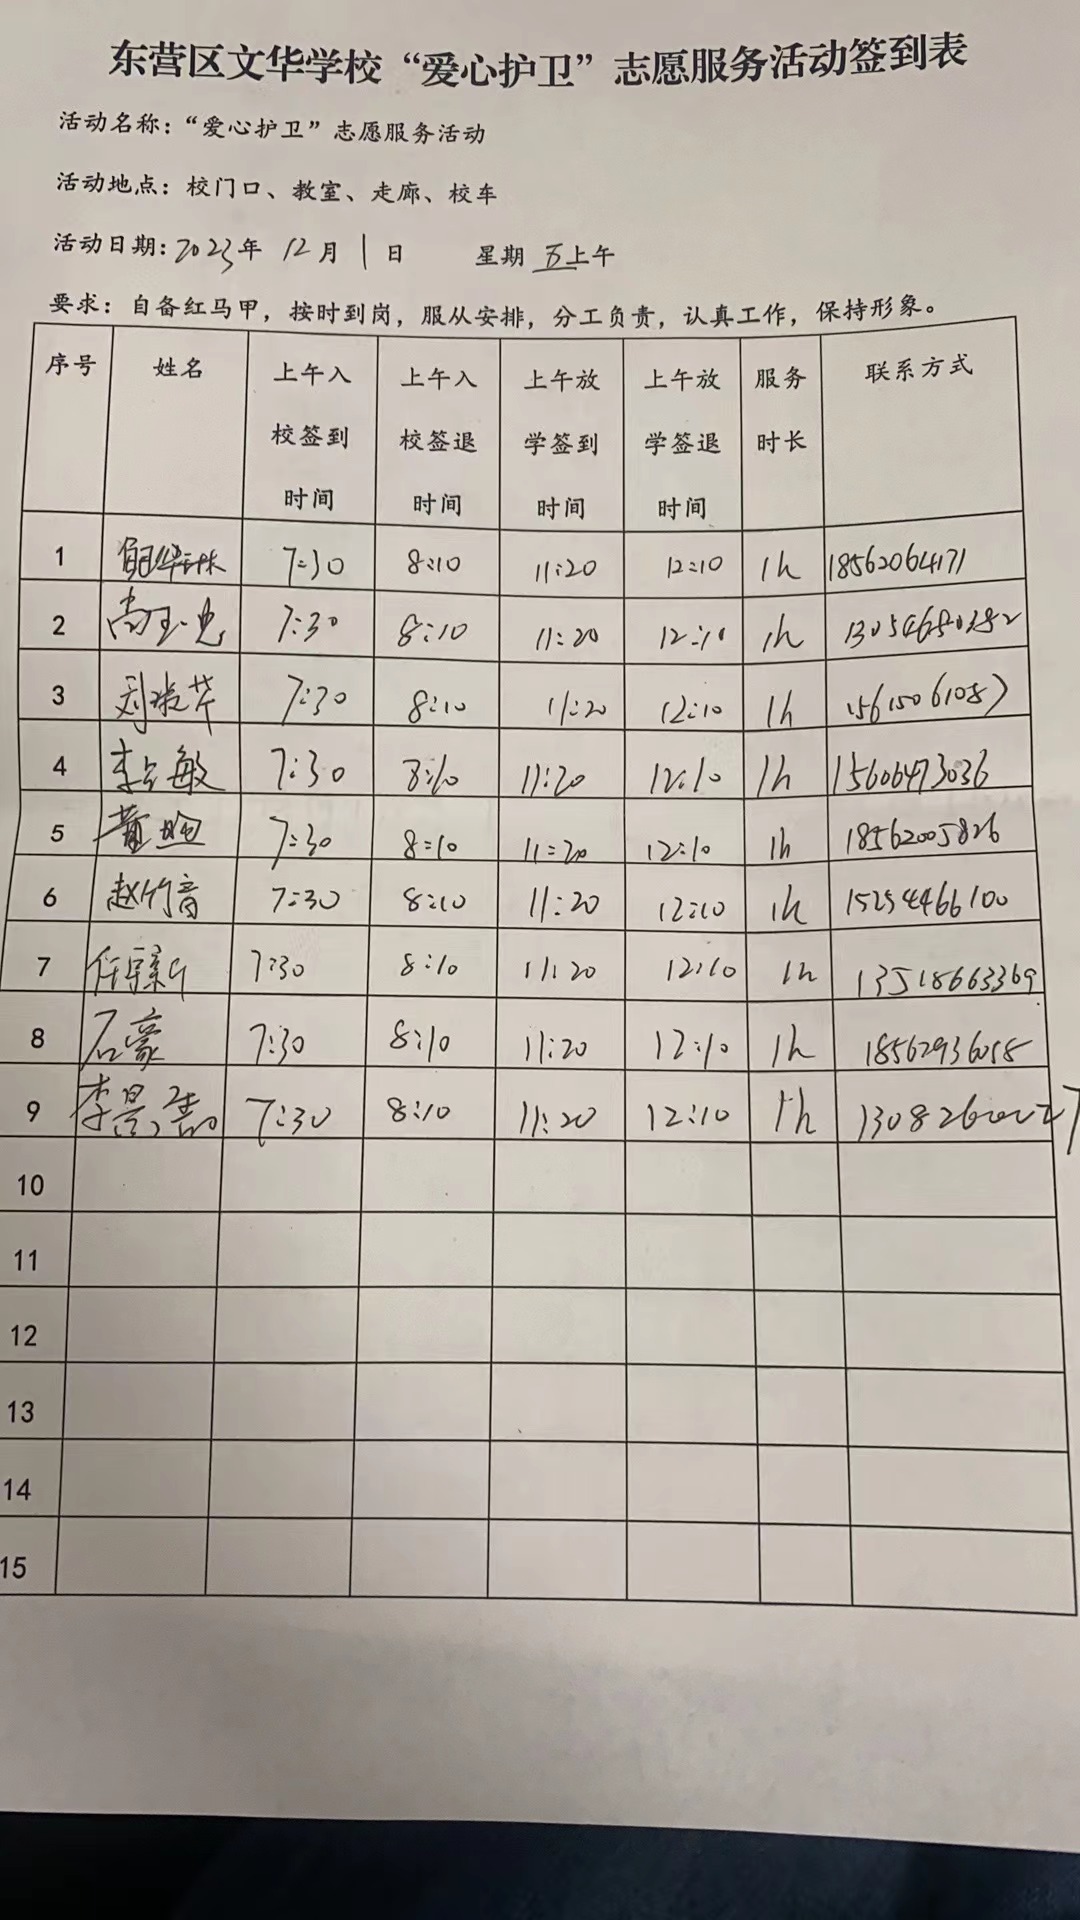 东营区文华学校“爱心护卫”志愿服务活动签到表
活动名称：“爱心护卫”志愿服务活动
活动地点：校门口、教室、走廊、校车
活动日期：2023年 12月 1日 星期 五上午
要求：自备红马甲，按时到岗，服从安排，分工负责，认真工作，保持形象。
序号 姓名 上午入校签到时间 上午入校签退时间 上午放学签到时间 上午放学签退时间 服务时长 联系方式
1 7:30 8:10 11:20 12:10 1h 18562064171
2 7:30 8:10 11:20 12:10 1h
3 7:30 8:10 11:20 12:10 1h 15615061087
4 7:30 8:10 11:20 12:10 1h 15606473036
5 7:30 8:10 11:20 12:10 1h 18562005826
6 赵竹音 7:30 8:10 11:20 12:10 1h 15254466100
7 7:30 8:10 11:20 12:10 1h 13518663369
8 石豪 7:30 8:10 11:20 12:10 1h 18562936058
9 7:30 8:10 11:20 12:10 1h
10
11
12
13
14
15